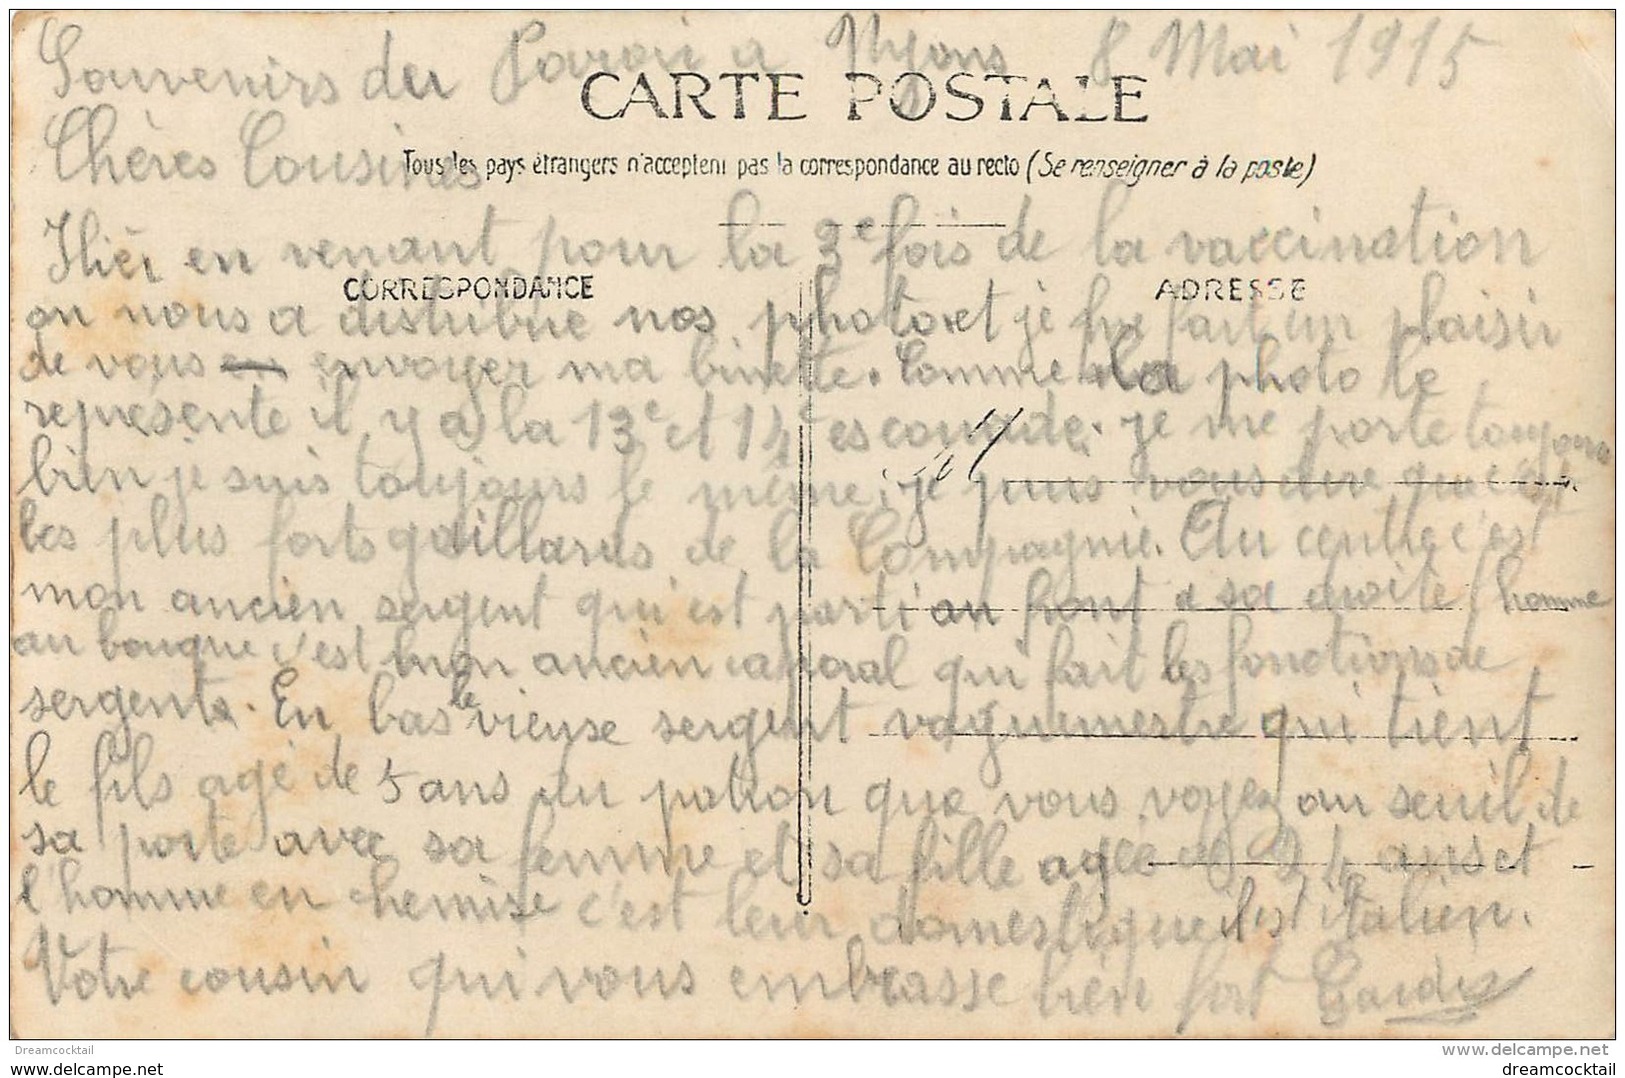 Souvenirs du a Nyons 8 Mai 1915
CARTE POSTALE
Chères Cousines
Tous les pays étrangers n'acceptent pas la correspondance au recto (Se renseigner à la poste)
Hier en venant pour la 3e fois de la vaccination
CORRESPONDANCE ADRESSE
on nous a distribue nos photo et je me fait un plaisir
de vous envoyer ma binette. Comme la photo le
représente il y a la 13e et 14e escouade. je me porte toujours
bien je suis toujours le même, je puis vous dire que c'est
les plus forts gaillards de la Compagnie. Au centre c'est
mon ancien sergent qui est parti au front a sa droite l'homme
au bouque c'est mon ancien caporal qui fait les fonctions de
sergents. En bas le vieuse sergent vaguemestre qui tient
le fils agé de 5 ans du patron que vous voyez au seuil de
sa porte avec sa femme et sa fille agée de 24 ans et
l'homme en chemise c'est leur domestique il est italien.
Votre cousin qui vous embrasse bien fort
Dreamcocktail
www.delcampe.net
www.delcampe.net
dreamcocktail